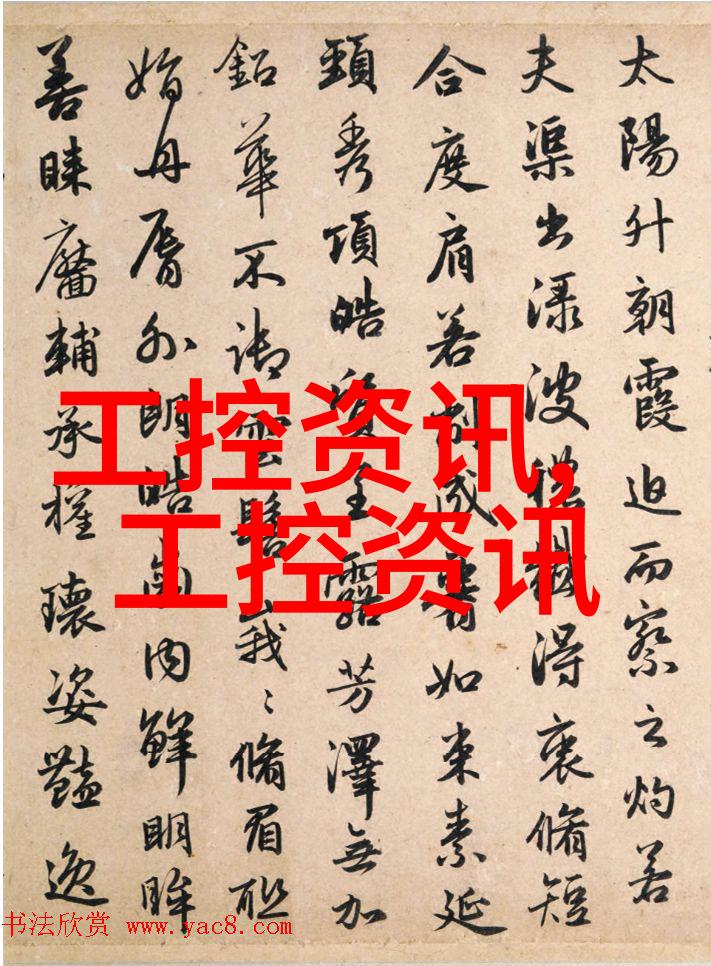 太陽升朝霞迫而察之灼若
夫渠出渌波穠纖得衷脩短
合度肩若削成要如束素延
頸秀項皓質呈露芳澤無加
鉛華不御雲髻峩〻脩眉聯
娟丹脣外朗皓齒内鮮明眸
善睞靨輔承權瓌姿豔逸
工控资讯,
工控资讯
书法欣赏 www.yac8.com